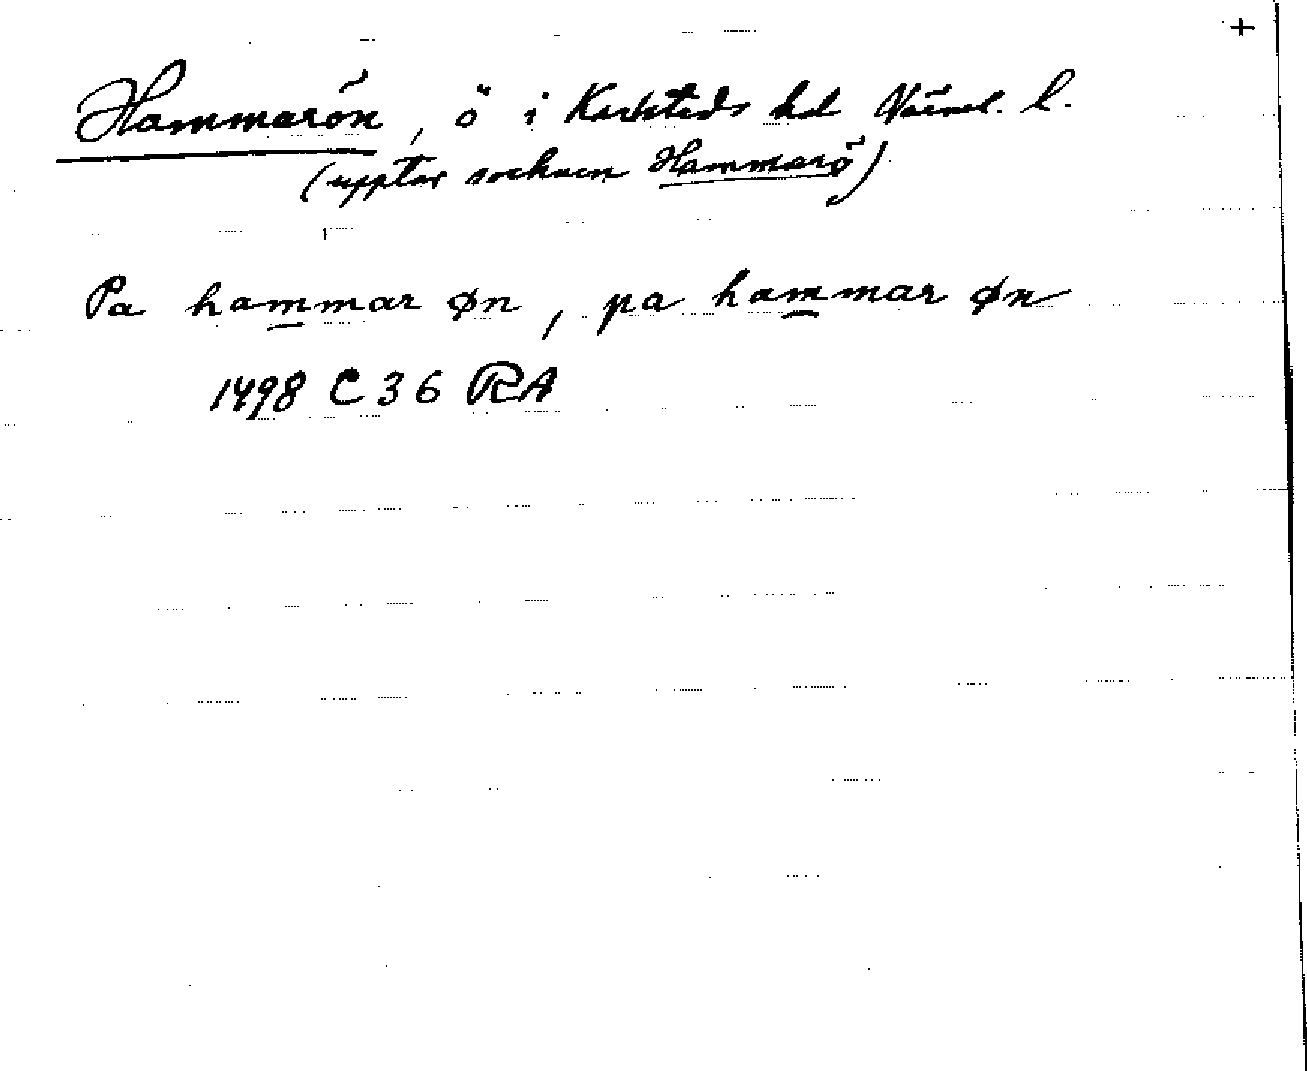 +
Hammarön, ö i Karlstads hd Värml. l.
(upptar socknen Hammarö)
Pa hammar øn, pa hammar øn
1498 C 36 RA